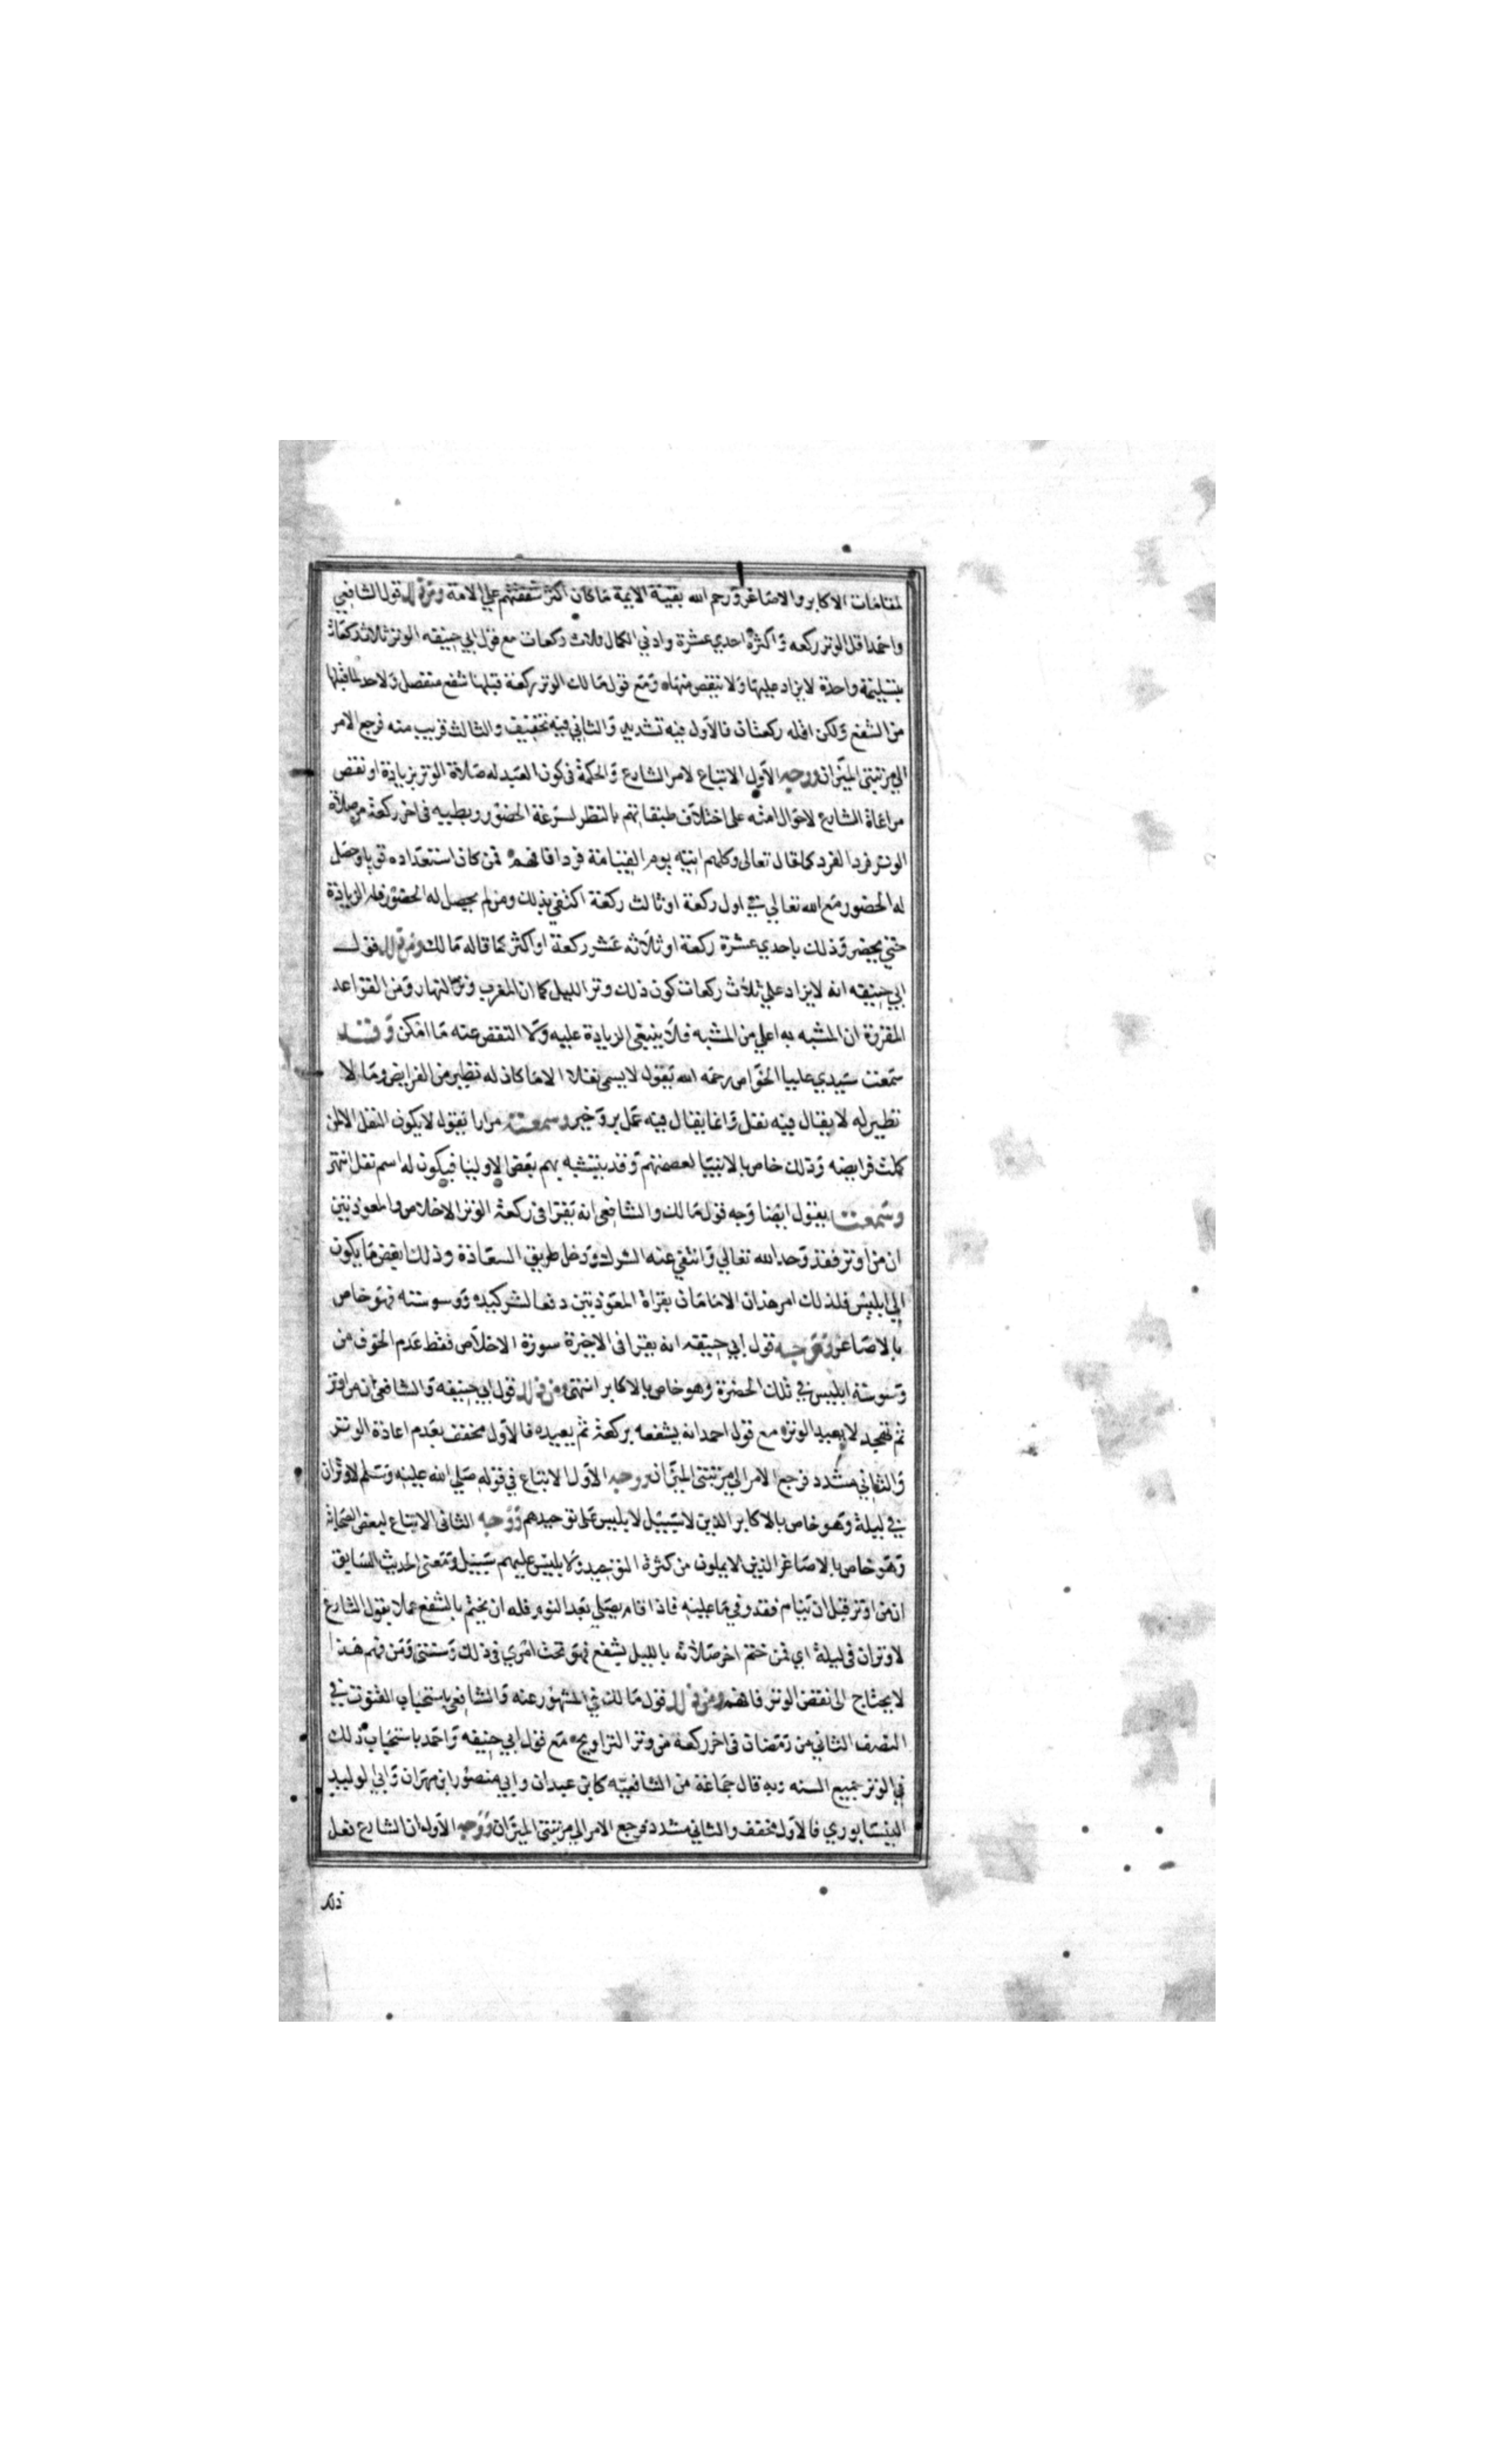 لمقامات الاكابر والاصاغر ورحم الله بقية الايمة ما كان اكثر شفقتهم علي الامة ومن ذلك قول الشافعي
واحمد اقل الوتر ركعه واكثره احدي عشرة وادني الكمال ثلاث ركعات مع قول ابي حنيفه الوتر ثلاث ركعات
بتسليمة واحدة لا يزاد عليها ولا ينقص منها ومع قول مالك الوتر ركعة قبلها شفع منفصل ولا حد لما قبلها
من الشفع ولكن اقله ركعتان فالاول فيه تشديد والثاني فيه تخفيف والثالث قريب منه فرجع الامر
الي مرتبتي الميزان ووجه الاول الاتباع لامر الشارع والحكمة في كون العبد له صلاة الوتر بزيادة او نقص
مراعاة الشارع لاحوال امته علي اختلاف طبقاتهم بالنظر لسرعة الحضور وبطييه في اخر ركعة من صلاة
الوتر فردا لفرد كما قال تعالي وكلهم اتيه يوم القيامة فردا فافهم فمن كان استعداده قويا وحصل
له الحضور مع الله تعالي في اول ركعة او ثالث ركعة اكتفي بذلك ومن لم يحصل له الحضور فله الزيادة
حتي يحضر وذلك باحدي عشرة ركعة او ثلاثه عشر ركعة او اكثر كما قاله مالك ومن ذلك قول
ابي حنيفه انه لا يزاد علي ثلاث ركعات كون ذلك وتر الليل كما ان المغرب وتر النهار ومن القواعد
المقررة ان المشبه به اعلي من المشبه فلا ينبغي الزيادة عليه ولا النقص عنه ما امكن وقد
سمعت سيدي عليا الخواص رحمه الله يقول لا يسمي نفلا الا ما كان له نظير من الفرايض وما لا
نظير له لا يقال فيه نفل وانما يقال فيه عمل بر وخير وسمعته مرارا يقول لا يكون النفل الا لمن
كملت فرايضه وذلك خاص بالانبيا لعصمتهم وقد يتشبه بهم بعض الاوليا فيكون له اسم نفل انتهي
وسمعته يقول ايضا وجه قول مالك والشافعي انه يقرا في ركعة الوتر الاخلاص والمعوذتين
ان من اوتر فقد وحد الله تعالي وانتفي عنه الشرك ودخل طريق السعادة وذلك ابغض ما يكون
الي ابليس فلذلك امر هذان الامامان بقراة المعوذتين دفعا لشر كيده ووسوسته فهو خاص
بالاصاغر ووجه قول ابي حنيفه انه يقرا في الاخيرة سورة الاخلاص فقط عدم الخوف من
وسوسة ابليس في تلك الحضرة وهو خاص بالاكابر انتهي ومن ذلك قول ابي حنيفه والشافعي انه من اوتر
ثم تهجد لا يعيد الوتر مع قول احمد انه يشفعه بركعة ثم يعيده فالاول مخفف بعدم اعادة الوتر
والثاني مشدد فرجع الامر الي مرتبتي الميزان ووجه الاول الاتباع في قوله صلي الله عليه وسلم لا وتران
في ليلة وهو خاص بالاكابر الذين لا سبيل لابليس علي توحيدهم ووجه الثاني الاتباع لبعض الصحابة
وهو خاص بالاصاغر الذين لا يملون من كثرة التوحيد ولابليس عليهم سبيل ومعني الحديث السابق
ان من اوتر قبل ان ينام فقد وفي ما عليه فاذا قام يصلي بعد النوم فله ان يختم بالشفع عملا بقول الشارع
لا وتران في ليلة اي فمن ختم اخر صلاته بالليل بشفع فهو تحت امري في ذلك وسنتي ومن فهم هذا
لا يحتاج الي نقض الوتر فافهم ومن ذلك قول مالك في المشهور عنه والشافعي باستحباب القنوت في
النصف الثاني من رمضان في اخر ركعة من وتر التراويح مع قول ابي حنيفه واحمد باستحباب ذلك
في الوتر جميع السنه وبه قال جماعة من الشافعيه كابن عبدان وابي منصور ابن مهران وابي الوليد
النيسابوري فالاول مخفف والثاني مشدد فرجع الامر الي مرتبتي الميزان ووجه الاول ان الشارع فعل
ذلك